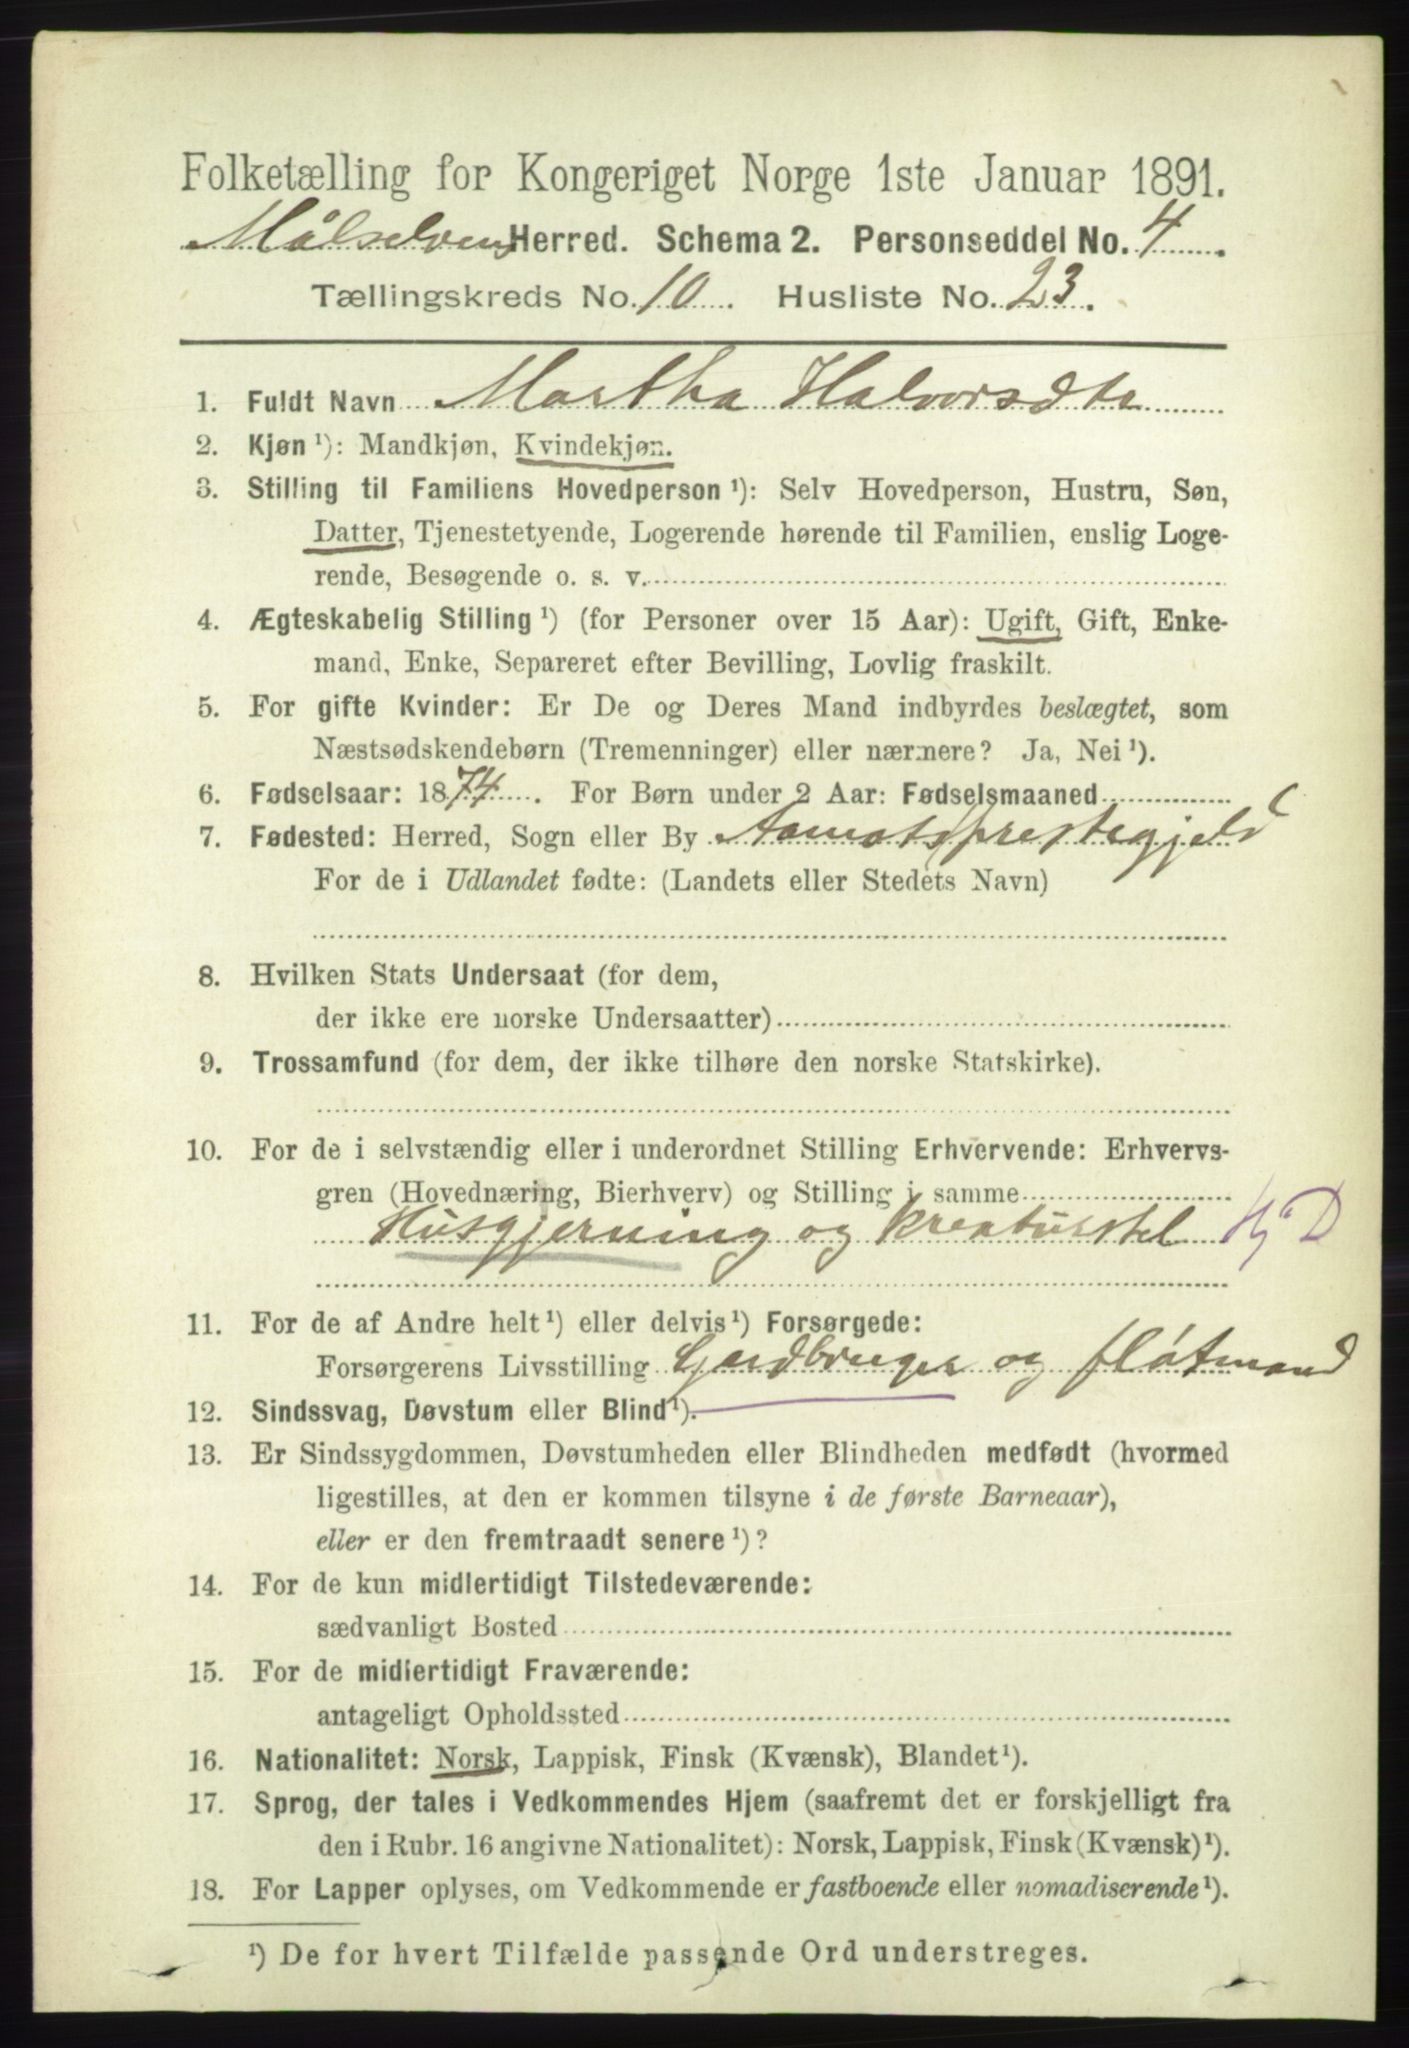 Folketælling for Kongeriget Norge 1ste Januar 1891.
Målselvens Herred. Schema 2. Personseddel No. 4.
Tællingskreds No. 10. Husliste No. 23.
1. Fuldt Navn Martha Halvorsdtr
2. Kjøn ¹): Mandkjøn, Kvindekjøn.
3. Stilling til Familiens Hovedperson ¹): Selv Hovedperson, Hustru, Søn,
Datter, Tjenestetyende, Logerende hørende til Familien, enslig Loge-
rende, Besøgende o. s. v.
4. Ægteskabelig Stilling ¹) (for Personer over 15 Aar): Ugift, Gift, Enke-
mand, Enke, Separeret efter Bevilling, Lovlig fraskilt.
5. For gifte Kvinder: Er De og Deres Mand indbyrdes beslægtet, som
Næstsødskendebørn (Tremenninger) eller nærmere? Ja, Nei ¹).
6. Fødselsaar: 1874. For Børn under 2 Aar: Fødselsmaaned
7. Fødested: Herred, Sogn eller By Aamots prestegjeld
For de i Udlandet fødte: (Landets eller Stedets Navn)
8. Hvilken Stats Undersaat (for dem,
der ikke ere norske Undersaatter)
9. Trossamfund (for dem, der ikke tilhøre den norske Statskirke).
10. For de i selvstændig eller i underordnet Stilling Erhvervende: Erhvervs-
gren (Hovednæring, Bierhverv) og Stilling i samme
Husgjerning og Kreaturstel Hj D
11. For de af Andre helt ¹) eller delvis ¹) Forsørgede:
Forsørgerens Livsstilling Gardbruger og fløtmand
12. Sindssvag, Døvstum eller Blind ¹).
13. Er Sindssygdommen, Døvstumheden eller Blindheden medfødt (hvormed
ligestilles, at den er kommen tilsyne i de første Barneaar),
eller er den fremtraadt senere ¹)?
14. For de kun midlertidigt Tilstedeværende:
sædvanligt Bosted
15. For de midlertidigt Fraværende:
antageligt Opholdssted
16. Nationalitet: Norsk, Lappisk, Finsk (Kvænsk), Blandet ¹).
17. Sprog, der tales i Vedkommendes Hjem (saafremt det er forskjelligt fra
den i Rubr. 16 angivne Nationalitet): Norsk, Lappisk, Finsk (Kvænsk) ¹).
18. For Lapper oplyses, om Vedkommende er fastboende eller nomadiserende ¹).
¹) De for hvert Tilfælde passende Ord understreges.